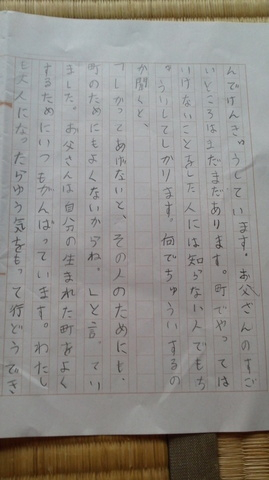 んでけんきゅうしています。お父さんのすご
いところはまだまだあります。町でやっては
いけないことをした人には知らない人でもち
ゅういしてしかります。何でちゅういするの
か聞くと、
「しかってあげないと、その人のためにも、
町のためにもよくないからね。」と言ってい
ました。お父さんは自分の生まれた町をよく
するためにいつもがんばっています。わたし
も大人になったらゆう気をもって行どうでき